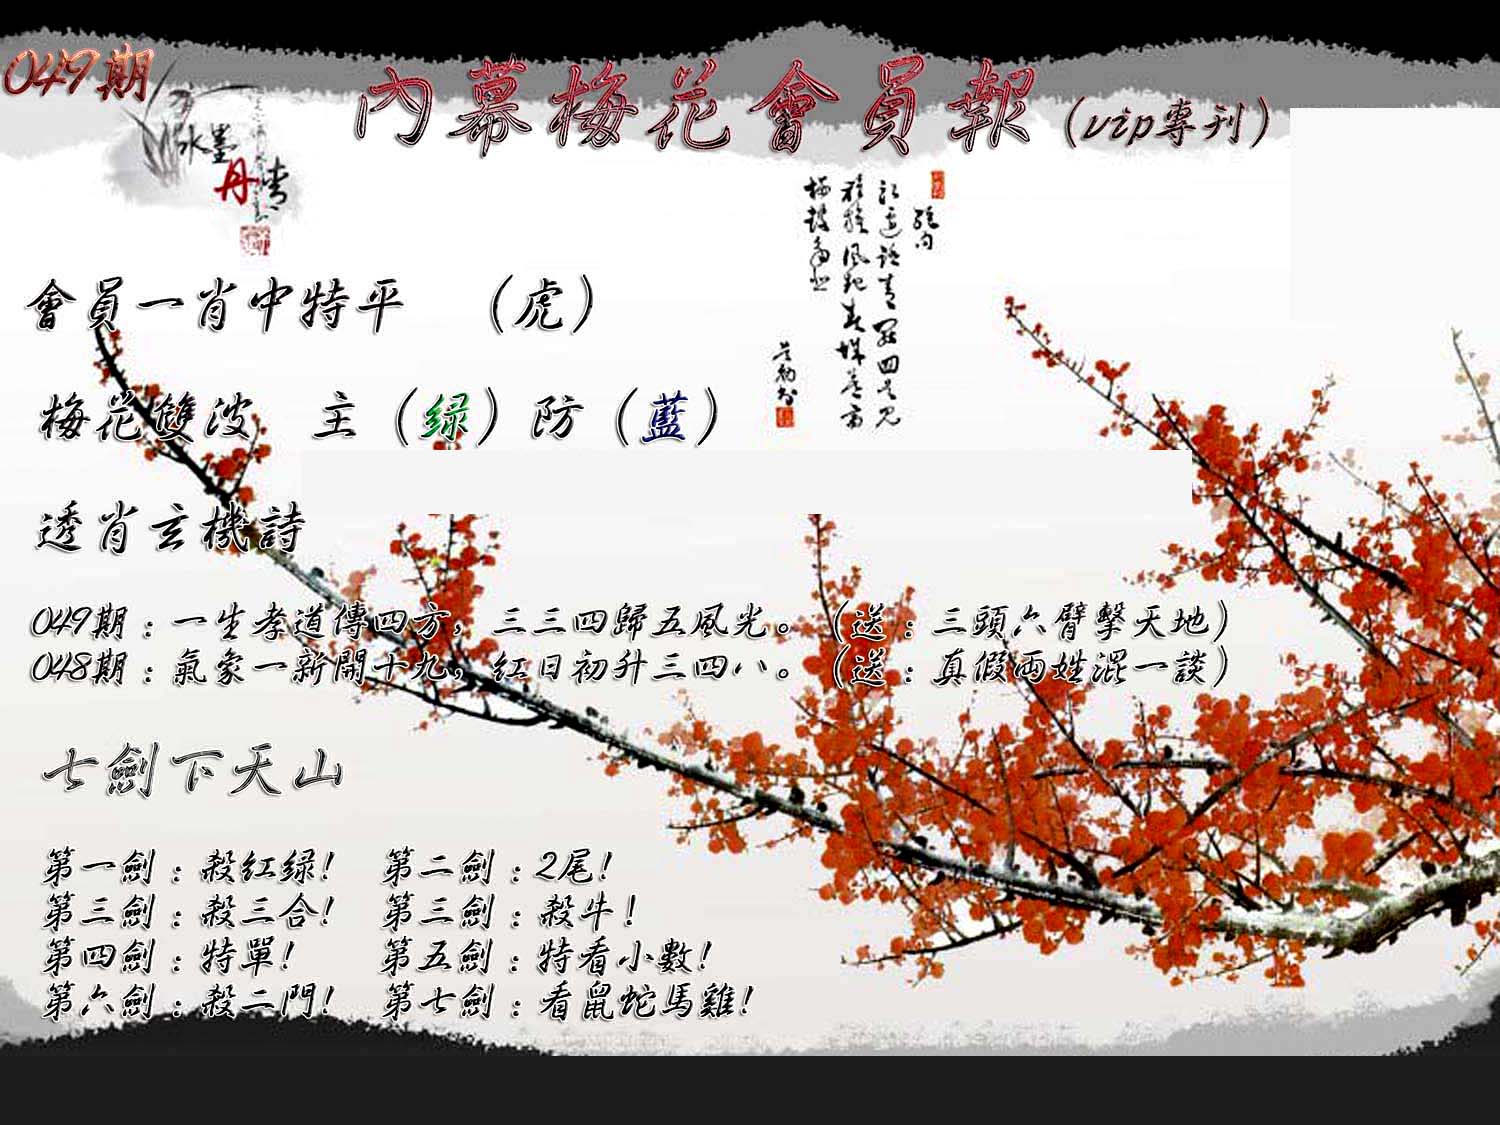 049期
內幕梅花會員報（vip專刊）
水墨
丹情
絕句
會員一肖中特平　（虎）
梅花雙波　主（绿）防（藍）
透肖玄機詩
049期：一生孝道傳四方，三三四歸五風光。（送：三頭六臂擊天地）
048期：氣象一新開十九，红日初升三四八。（送：真假两姓混一談）
七劍下天山
第一劍：殺红绿！　第二劍：2尾！
第三劍：殺三合！　第三劍：殺牛！
第四劍：特單！　第五劍：特看小數！
第六劍：殺二門！　第七劍：看鼠蛇馬雞！